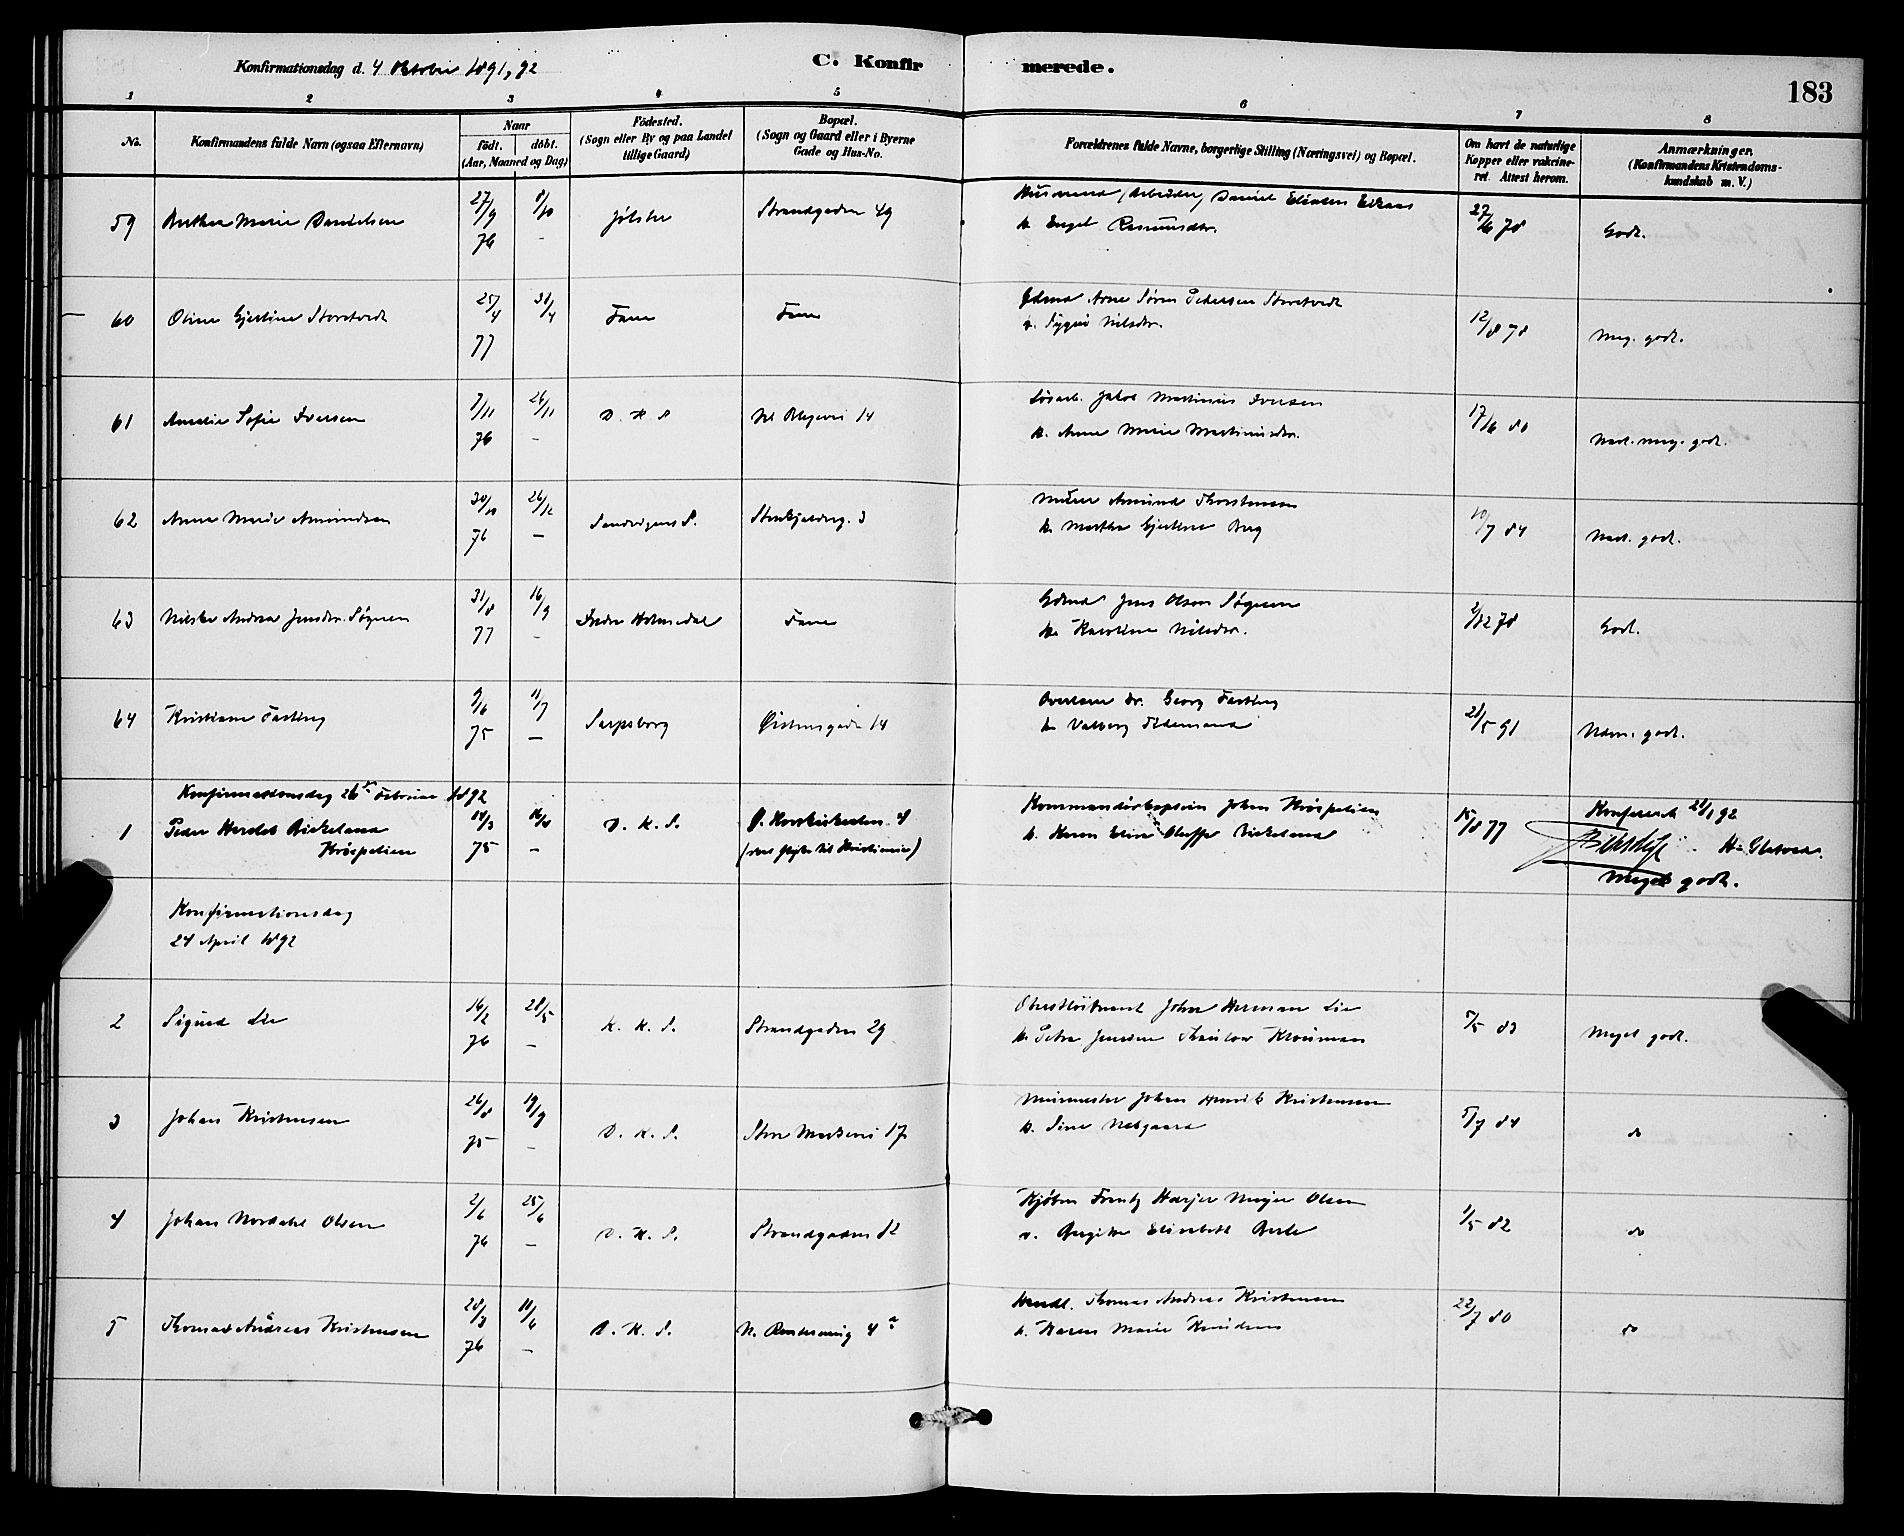 Konfirmationsdag d. 4 Oktober 1891, 92
C. Konfirmerede.
183
1 2 3 4 5 6 7 8
No.
Konfirmandens fulde Navn (ogsaa Efternavn)
Naar
födt. döbt.
(Aar, Maaned og Dag)
Födested.
(Sogn eller By og paa Landet
tillige Gaard)
Bopæl.
(Sogn og Gaard eller i Byerne
Gade og Hus-No.
Forældrenes fulde Navne, borgerlige Stilling (Næringsvei) og Bopæl.
Om havt de naturlige
Kopper eller vakcine-
ret. Attest herom.
Anmærkninger.
(Konfirmandens Kristendoms-
kundskab m. V.)
59 Berthea Marie Danielsen 27/9 76 8/10 - Jølster Strandgaden 49
Husmand (Arbeider) Daniel Eliasen
h. Engel Rasmusdtr. 27/6 78 Godt.
60 Oline Gjertine Storetvedt 25/4 77 30/4 Fane Fane
Gdmd Arne Sören Pedersen Storetvedt
Nilsdtr. 12/8 78 Meg. godt.
61 Amalie Sofie Iversen 7/11 76 26/11 - D. K. S 14
Jakob Martinus Iversen
h. Anne Marie Martinusdtr. 17/6 80 Next. meg. godt.
62 Anna Marie Amundsen 30/10 76 26/12 - Sandvigens S. 3
Murer Amund Thorstensen
h. Martha Gjertine Berg 10/7 84 Next. godt.
63 Andrea Jensdtr. Søgnen 31/8 77 16/9 - Indre Holmedal Fane
Gdmd Jens Olsen Søgnen
h. Karoline Nilsdtr. 78 Godt.
64 Kristiane Fasting 9/6 75 11/7 - Sarpsborg Østensgade 14
Overlærer Dr. Georg Fasting
h. Valborg Tidemand 28/5 91 Udm. godt.
Konfirmationsdag 26de Februar 1892
1 Peder Hersleb Birkeland
Kröepelien 14/3 75 16/4 - D. K. S. Ø. Korskirkealm. 4
(skal flytte til Kristiania)
Kommandörkaptein Johan Kröepelien
h. Karen Elise Oluffa Birkeland 15/8 77
Konfereret 28/1 92
Meget godt.
Konfirmationsdag
24 April 1892
2 Sigurd Lie 16/2 76 28/5 - K. K. S. Strandgaden 29
Oberstlöitnant Johan Herman Lie
h. Petra Jensine Thaulow Kloumann 5/5 83 Meget godt.
3 Johan Kristensen 26/8 75 19/9 - D. K. S. Store Markevei 17
Murmester Johan Henrik Kristensen
h. Sine Nesgaard 5/7 84 do
4 Johan Nordahl Olsen 2/6 76 25/6 - D. K. S. Strandgaden 82
Kjøbm. Frantz Meyer Olsen
Elisabeth 1/5 82 do
5 Thomas Andreas Kristensen 28/3 76 11/6 - D. K. S. 4a
Handl. Thomas Andreas Kristensen
h. Karen Marie Knudsen 22/7 80 do